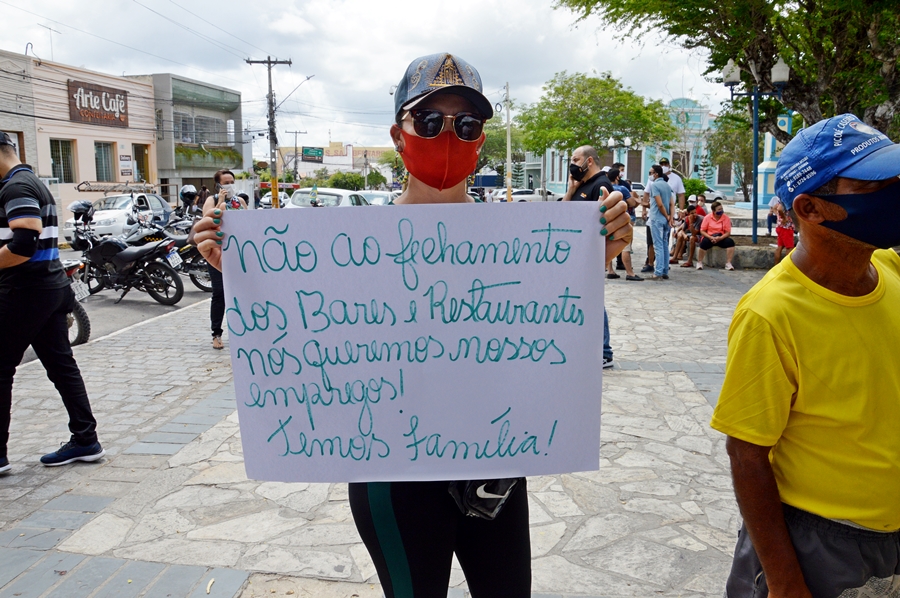 Arte Café
não ao fechamento
dos Bares e Restaurantes
nós queremos nossos
empregos!
Temos família!